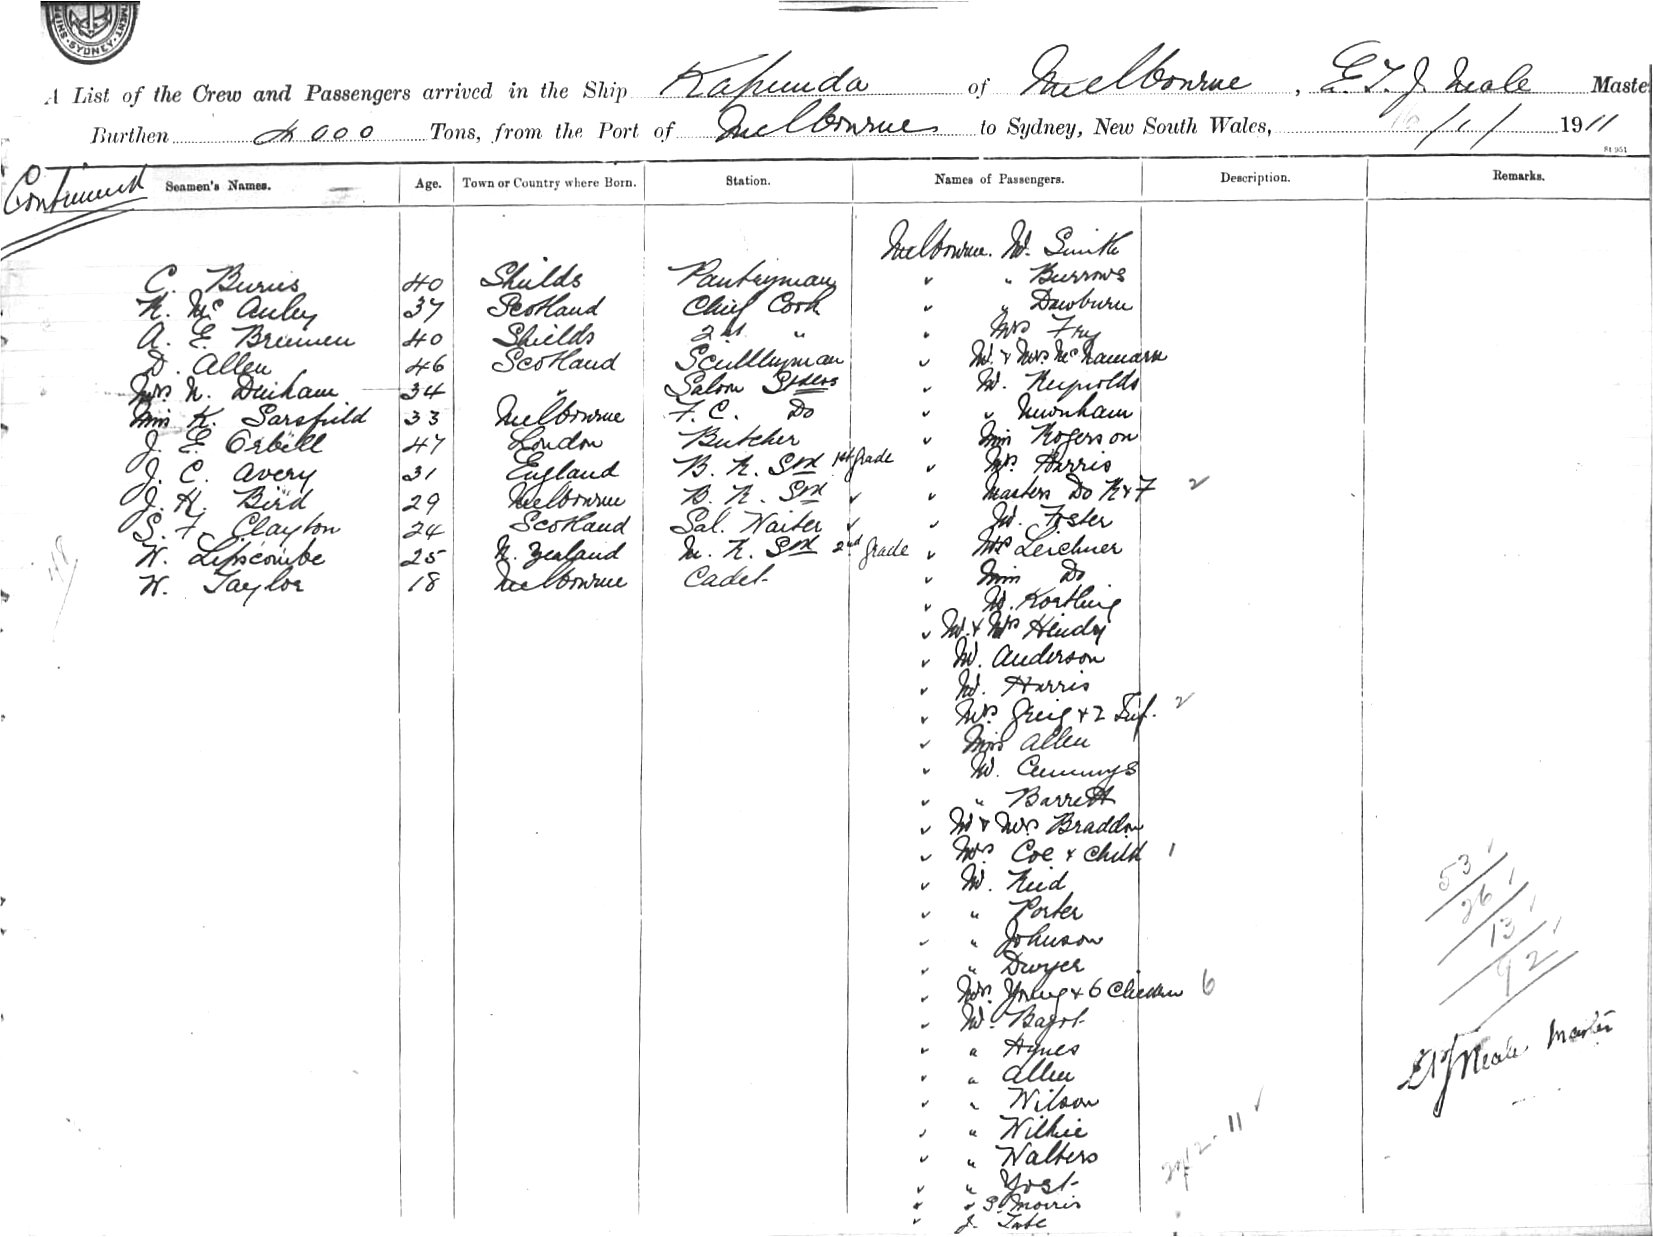 SYDNEY
A List of the Crew and Passengers arrived in the Ship Kapunda of Melbourne, E. T. J. Neale Maste
Burthen 4000 Tons, from the Port of Melbourne to Sydney, New South Wales, 16/1/1911
Continued
Seamen's Names. Age. Town or Country where Born. Station. Names of Passengers. Description. Remarks.
Melbourne. Mr. Smith
C. Burns 40 Shields Pantryman " Burrows
R. McAuley 37 Scotland Chief Cook " Dawburn
A. E. Brennen 40 Shields 2nd " Mrs Fry
D. Allen 46 Scotland Scullleyman Mr. & Mrs McNamara
Mrs N. Durham 34 " Saloon Stdess Mr. Reynolds
Miss K. Sarsfield 33 Melbourne F. C. Do " Newnham
J. E. Orbell 47 London Butcher Miss Rogerson
J. C. Avery 31 England B. R. Std 1st grade Mrs. Harris
J. K. Bird 29 Melbourne B. R. Std " Masters Do R & F 2
S. F. Clayton 24 Scotland Sal. Waiter " Mr. Foster
W. Lipscombe 25 N. Zealand M. R. Std 2nd grade Mrs Leichner
W. Taylor 18 Melbourne Cadet Miss Do
Mr. Koething
Mr. & Mrs Hendy
Mr. Anderson
Mr. Harris
Mrs. Greig & 2 Inf. 2
Miss Allen
Mr. Cummings
" Barrett
Mr & Mrs Braddon
Mrs Coe & Child 1
Mr. Reid
" Porter
" Johnson
" Dwyer
Mrs. Young & 6 Children 6
Mr. Bagot
" Hynes
" Allen
" Wilson
" Wilkie
" Walters
" Yost
" S. Morris
J. Tate
53
26
13
92
E T J Neale Master